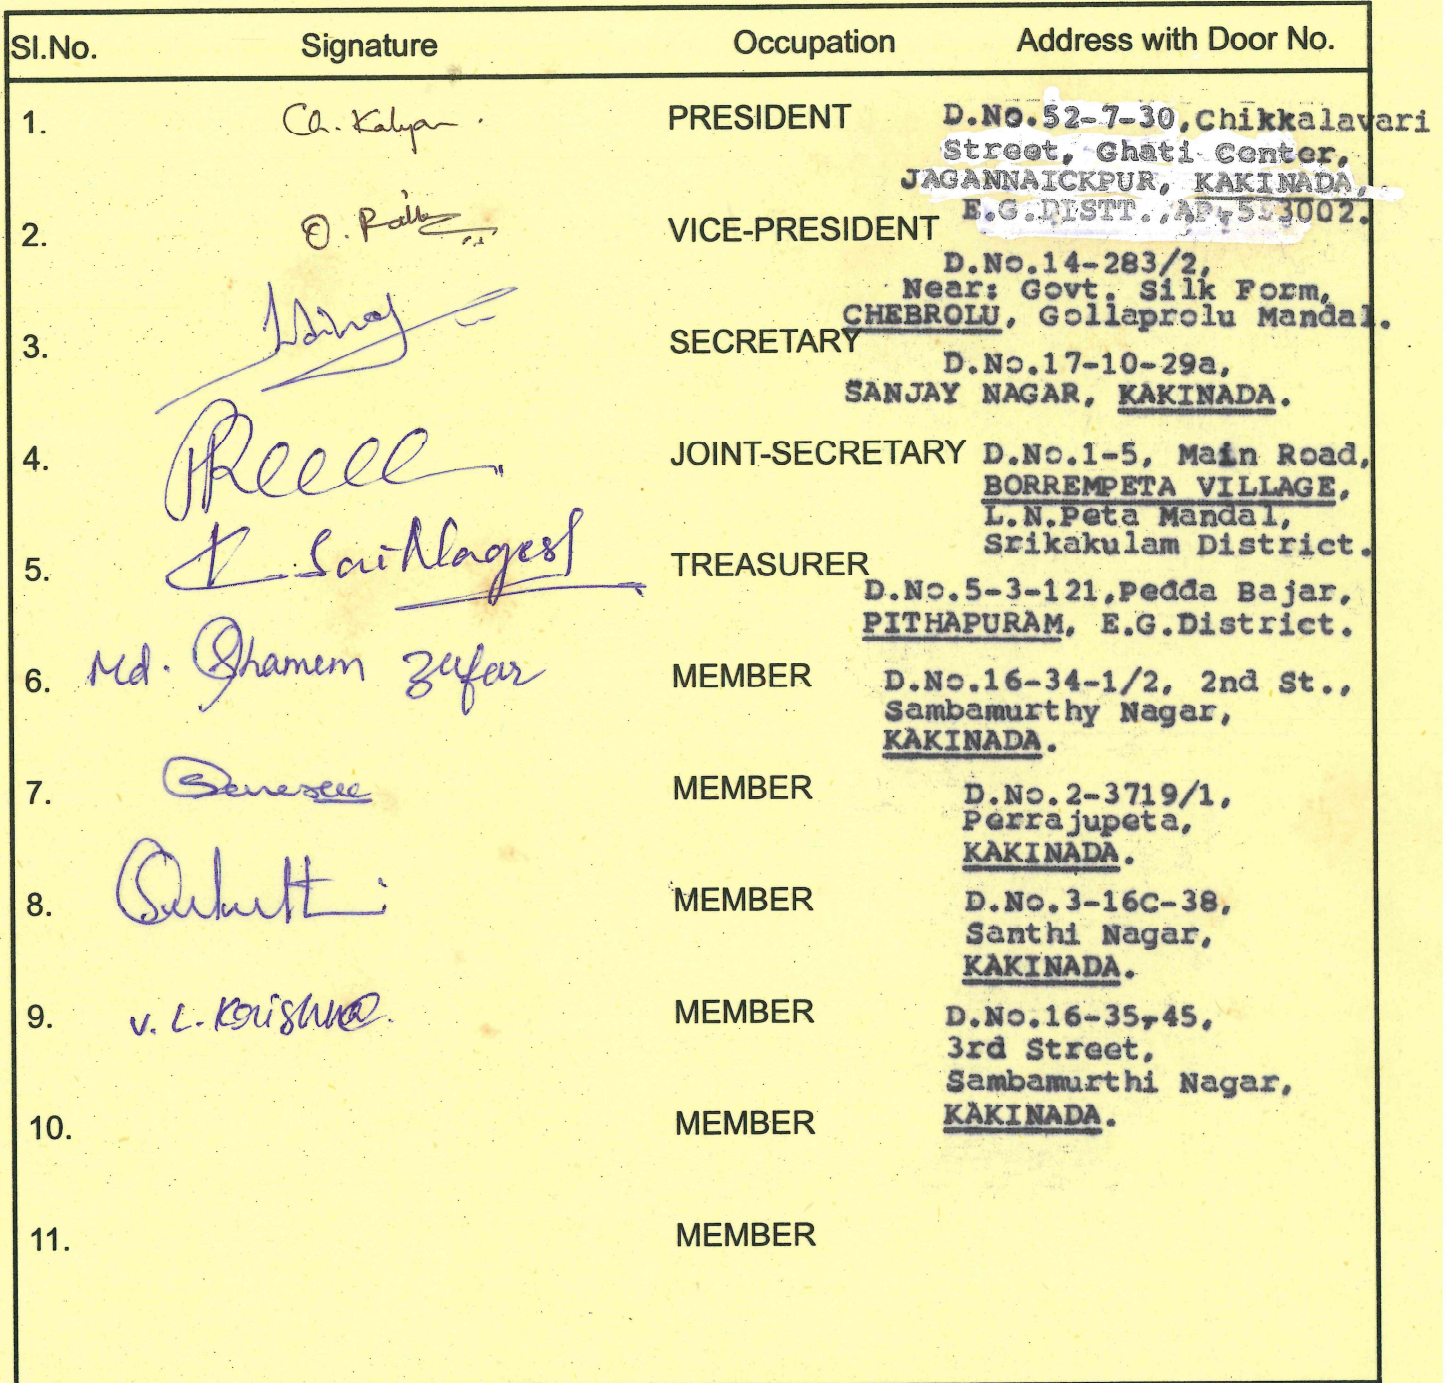 Sl.No. Signature Occupation Address with Door No.
1. Ch. Kalyan. PRESIDENT D.No.52-7-30,Chikkalavari
Street, Ghati Center,
JAGANNAICKPUR, KAKINADA,
E.G.DISTT.,AP,533002.
2. VICE-PRESIDENT
D.No.14-283/2,
Near: Govt. Silk Form,
CHEBROLU, Gollaprolu Mandal.
3. SECRETARY
D.No.17-10-29a,
SANJAY NAGAR, KAKINADA.
4. JOINT-SECRETARY D.No.1-5, Main Road,
BORREMPETA VILLAGE,
L.N.Peta Mandal,
Srikakulam District.
5. K. Sai Nagesh TREASURER
D.No.5-3-121,Pedda Bajar,
PITHAPURAM, E.G.District.
6. Md. Shamem Zufar MEMBER D.No.16-34-1/2, 2nd St.,
Sambamurthy Nagar,
KAKINADA.
7. MEMBER D.No.2-3719/1,
Perrajupeta,
KAKINADA.
8. MEMBER D.No.3-16C-38,
Santhi Nagar,
KAKINADA.
9. V. L. Krishna. MEMBER D.No.16-35-45,
3rd Street,
Sambamurthi Nagar,
10. MEMBER KAKINADA.
11. MEMBER